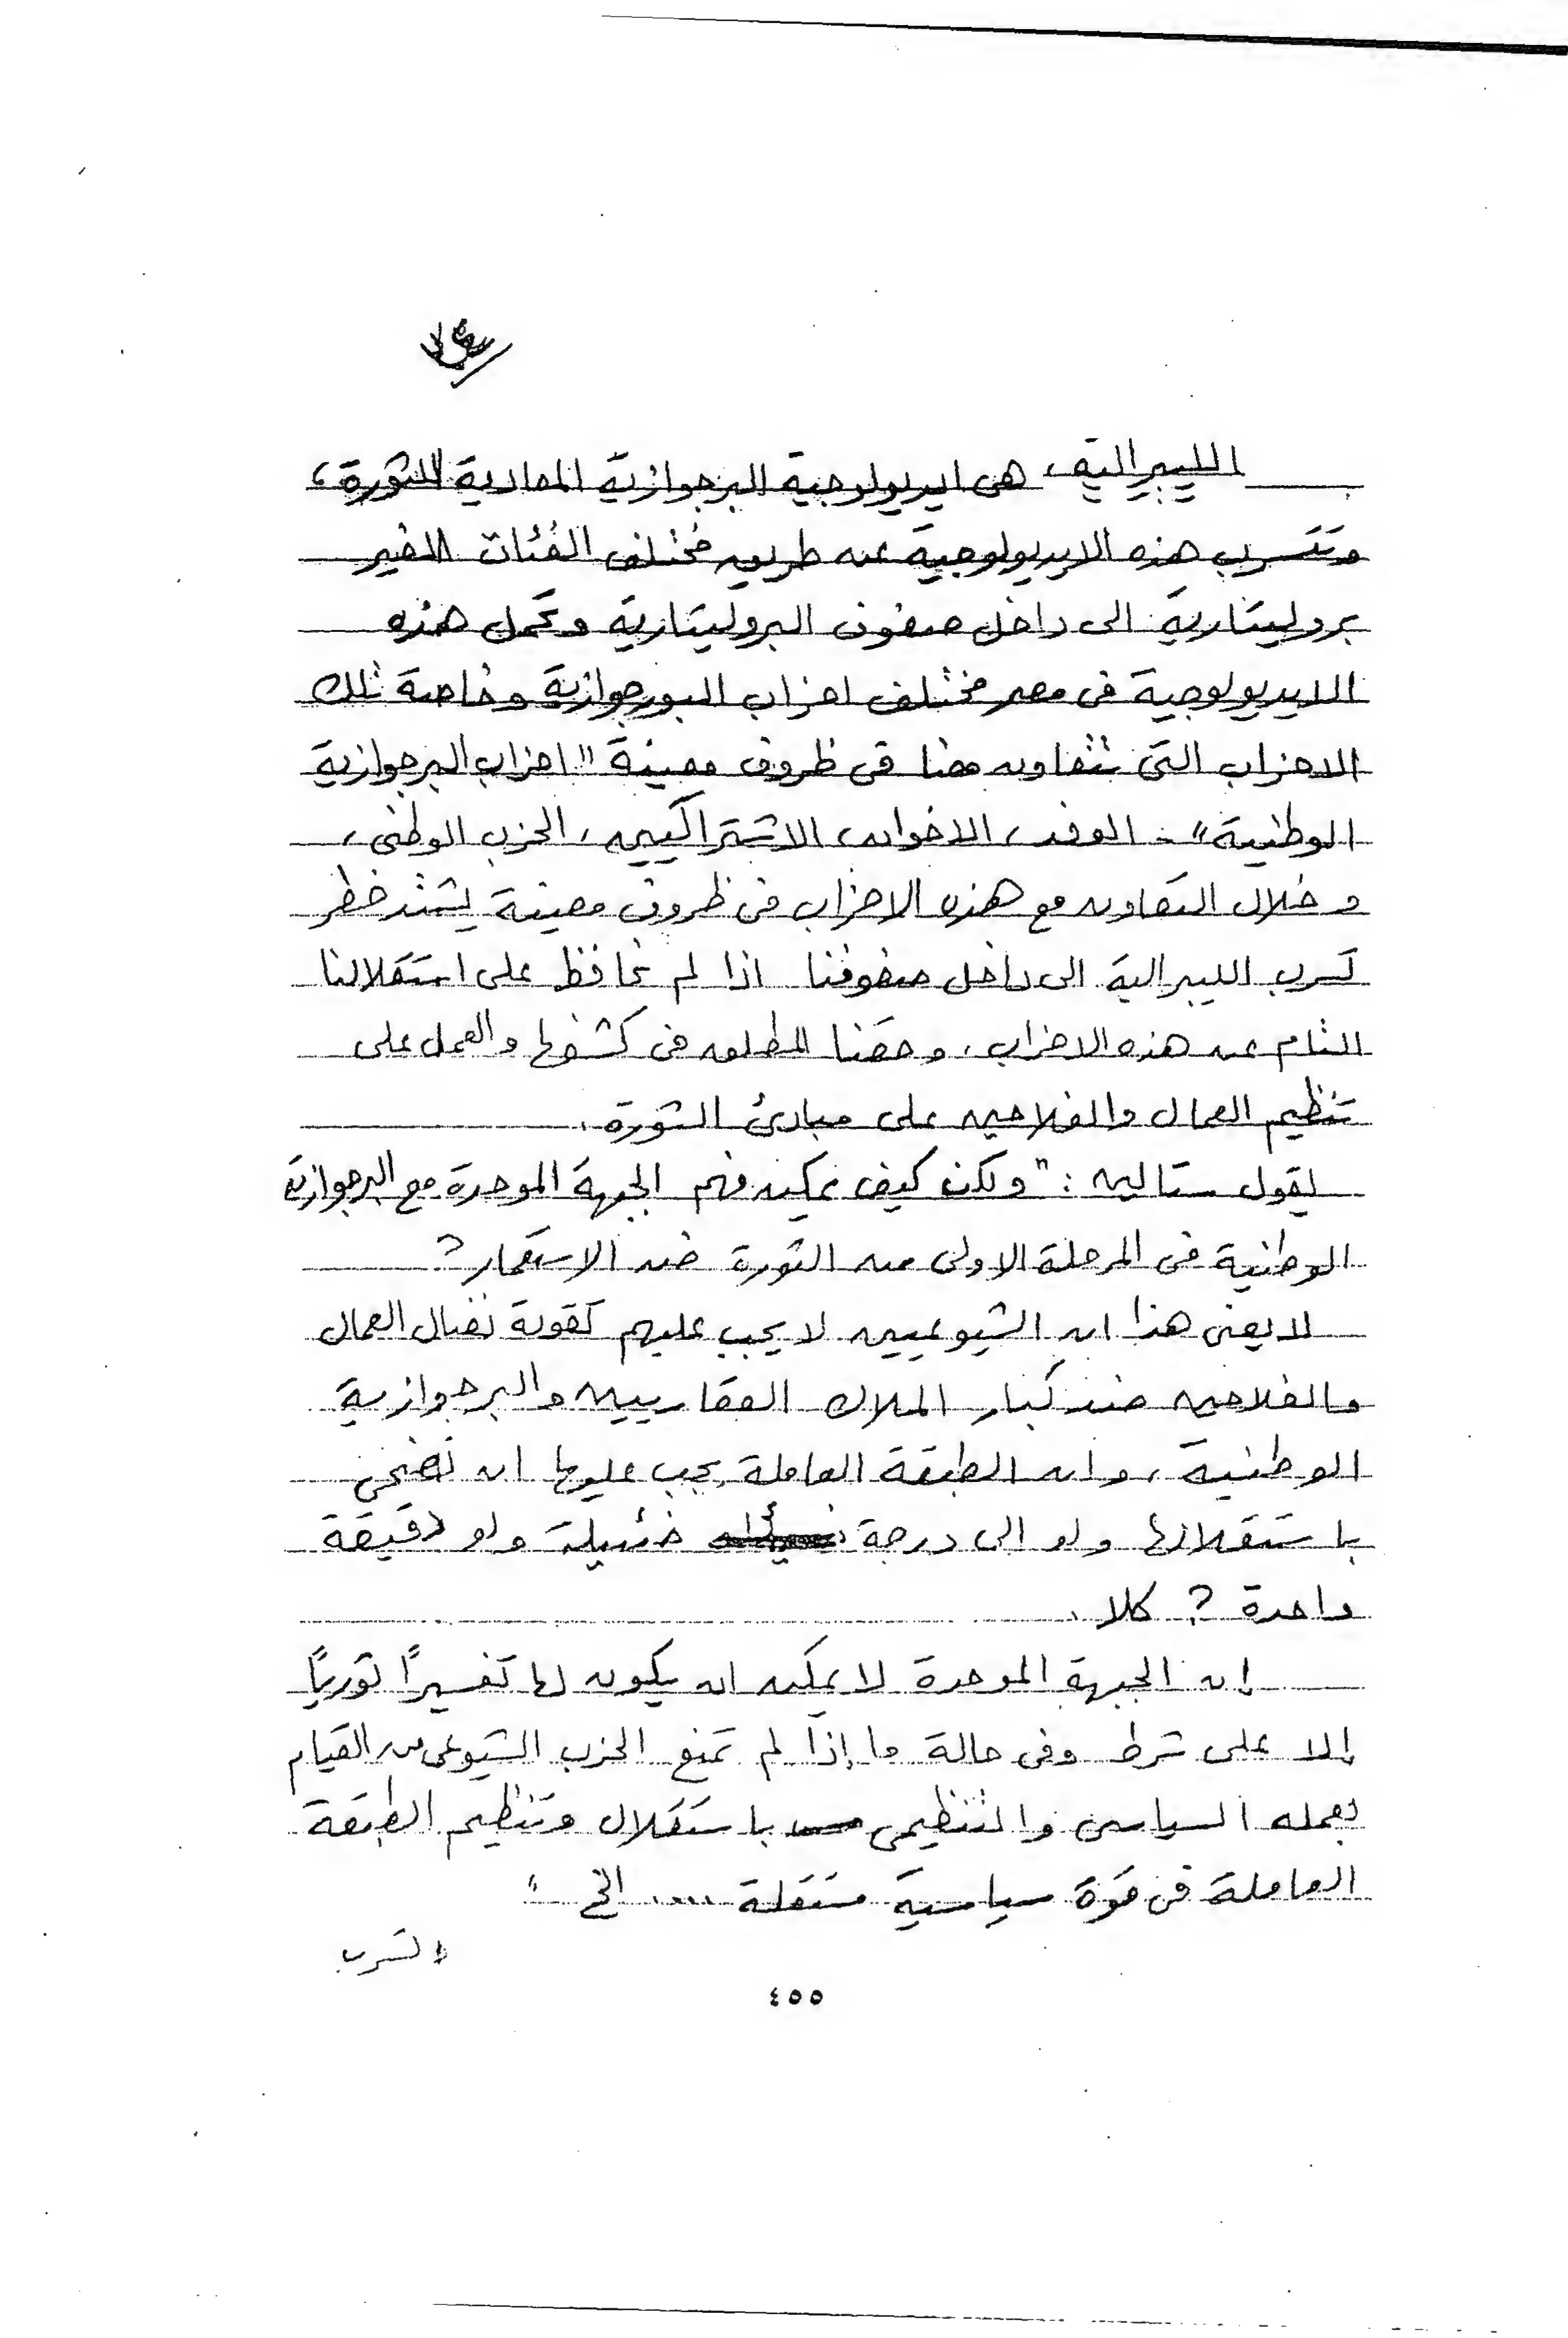 الليبرالية، هى ايديولوجية البرجوازية المعادية للثورة،
وتتسرب هذه الايديولوجية عن طريق مختلف الفئات الغير
بروليتارية الى داخل صفوف البروليتارية وتحمل هذه
الايديولوجية فى مصر مختلف احزاب البورجوازية وخاصة تلك
الاحزاب التى نتعاون معنا فى ظروف معينة "احزاب البرجوازية
الوطنية" - الوفد، الاخوان، الاشتراكيين، الحزب الوطنى،
و خلال التعاون مع هذه الاحزاب فى ظروف معينة يشتد خطر
تسرب الليبرالية الى داخل صفوفنا اذا لم نحافظ على استقلالنا
التام عن هذه الاحزاب، وحقنا المطلق فى كشفها والعمل على
تنظيم العمال والفلاحين على مبادئ الثورة.
يقول ستالين: "ولكن كيف يمكن فهم الجبهة الموحدة مع البرجوازية
الوطنية فى المرحلة الاولى من الثورة ضد الاستعمار؟
لا يعنى هذا ان الشيوعيين لا يجب عليهم تقوية نضال العمال
والفلاحين ضد كبار الملاك العقاريين والبرجوازية
الوطنية، وان الطبقة العاملة يجب عليها ان تضحى
باستقلالها ولو الى درجة ضئيلة ولو دقيقة
واحدة؟ كلا.
إن الجبهة الموحدة لا يمكن ان يكون لها تفسيرًا ثوريًا
إلا على شرط وفى حالة ما إذا لم تمنع الحزب الشيوعى من القيام
بعمله السياسى والتنظيمى باستقلال وتنظيم الطبقة
العاملة فى قوة سياسية مستقلة .... الخ "
تسرب
٤٥٥